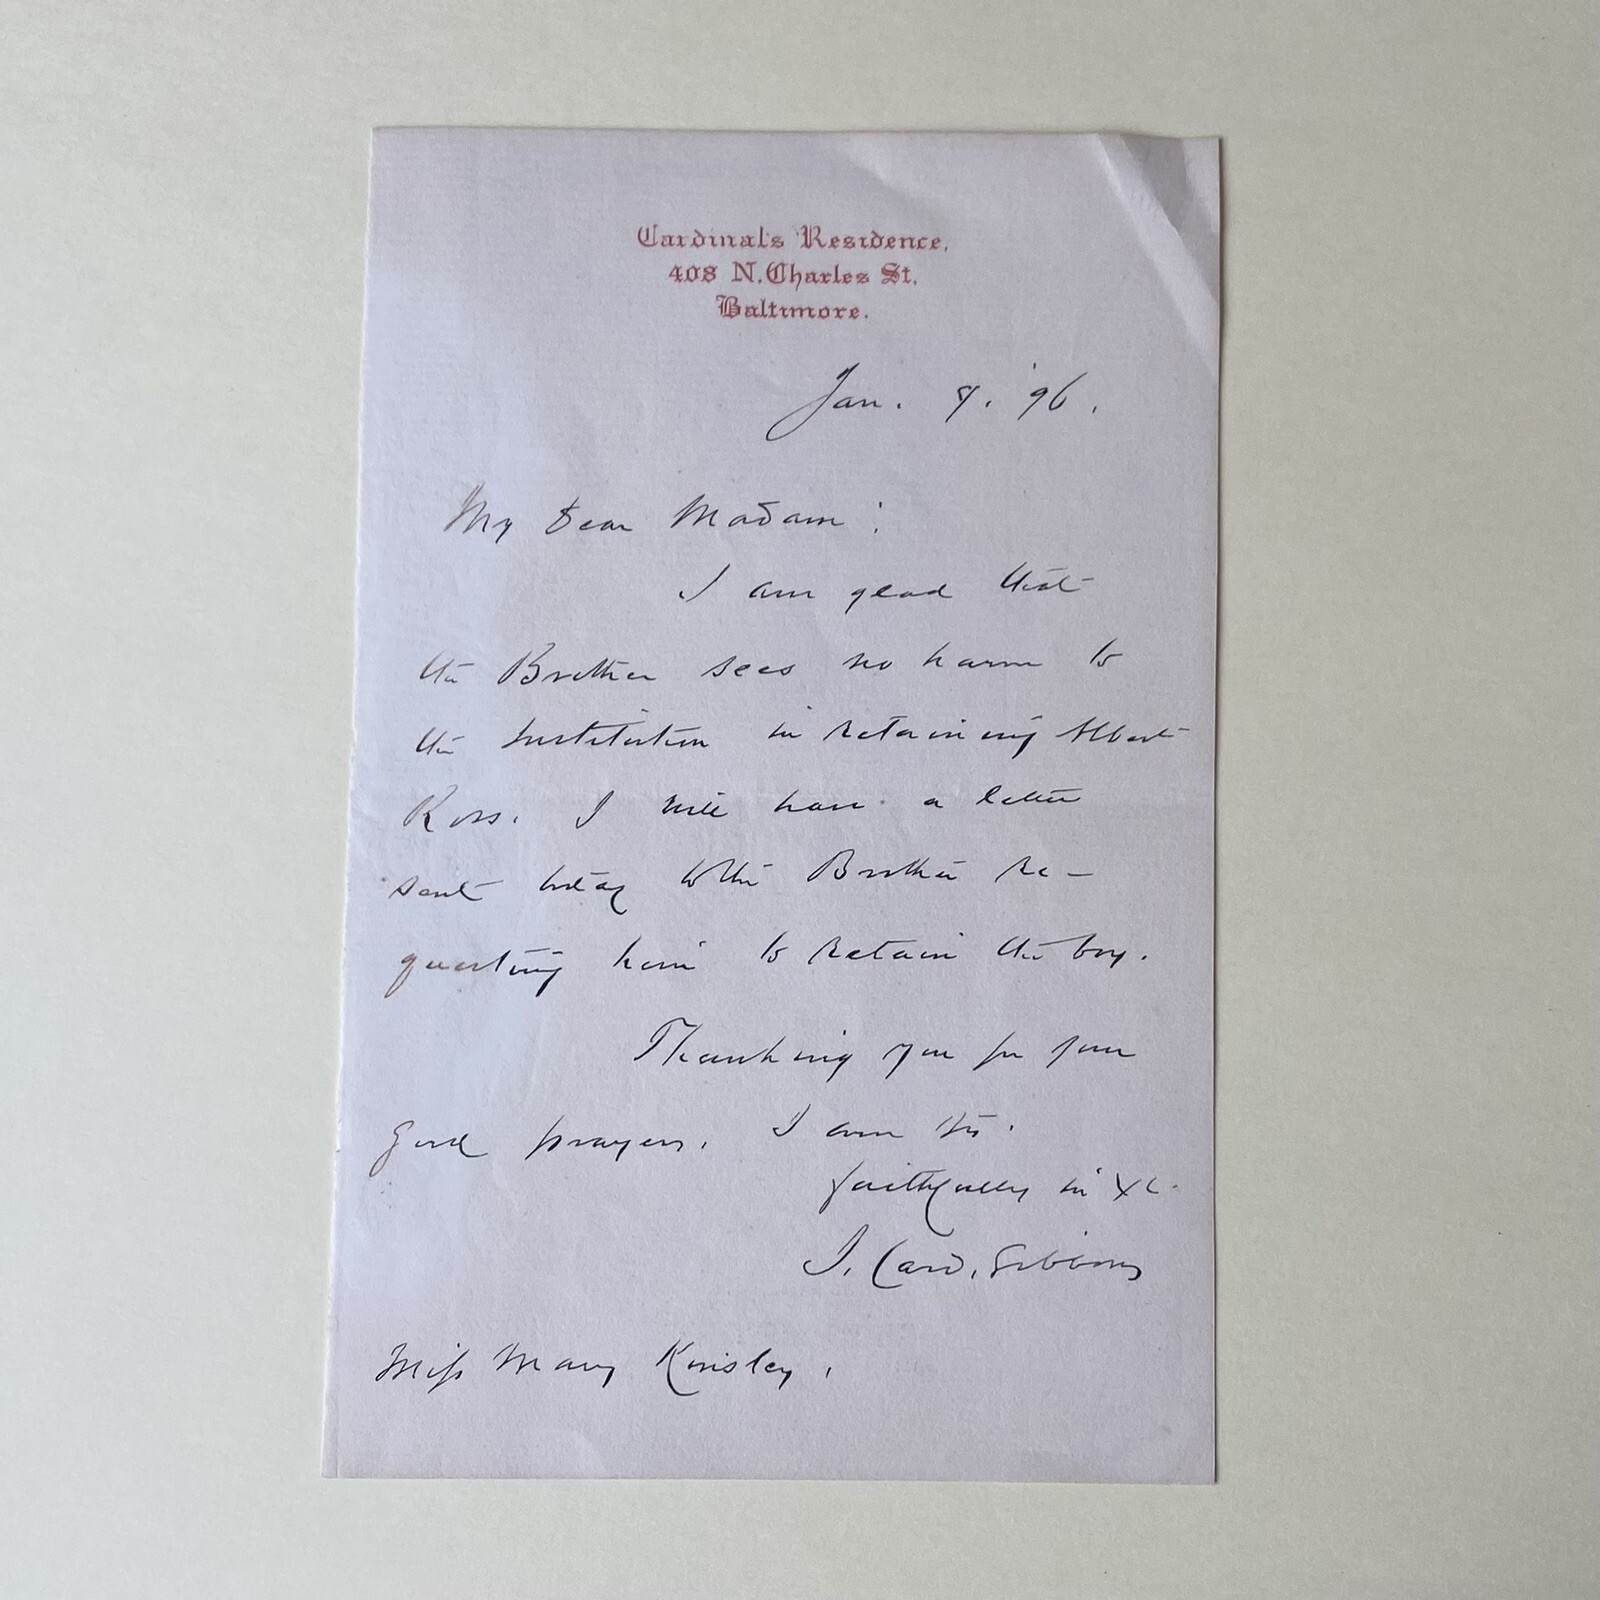 Cardinal's Residence,
408 N. Charles St.
Baltimore.
Jan. 8. '96.
My dear Madam:
I am glad that
the Brother sees no harm to
the Institution in retaining Albert
Ross. I will have a letter
sent today to the Brother re-
questing him to retain the boy.
Thanking you for your
good prayers, I am
faithfully in Xt.
J. Card. Gibbons
Miss Mary Kinsley,